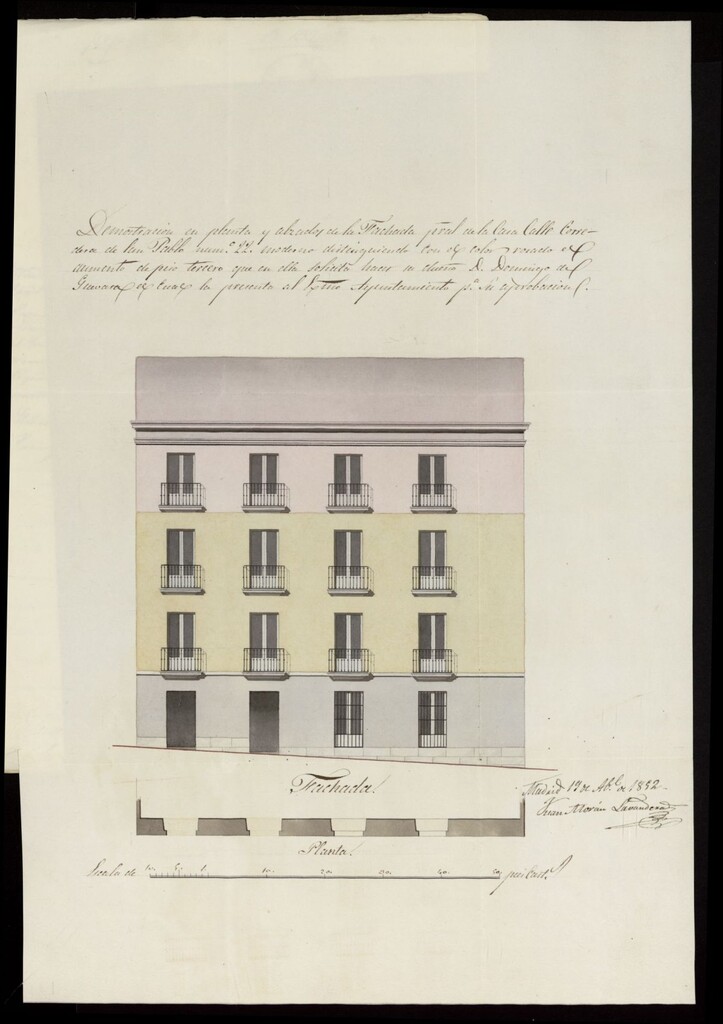 Demostracion en planta y alzado de la Fachada pral de la Casa Calle Corre-
dera de San Pablo num.º 22 moderno distinguiendo con el color rosado el
aumento de piso tercero que en ella solicita hacer su dueño D. Domingo de
el cual la presenta al Exmo Ayuntamiento p.ª su aprobacion.
Fachada.
Madrid 19 de Ab.l de 1852.
Juan Morán Lavandera
Planta.
Escala de 10 5 10 20 30 40 50 pies Cast.s